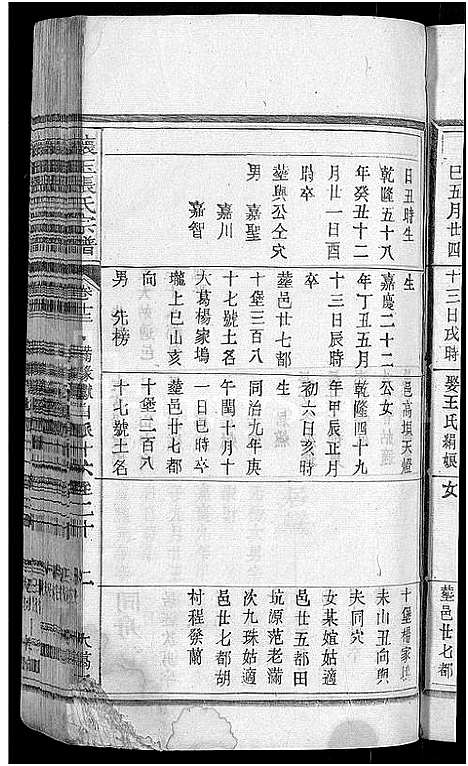 日丑時生
乾隆五十八
年癸丑十二
月廿一日酉
時卒
塟與公仝穴
男 嘉聖
嘉川
嘉智
生
嘉慶二十二
年丁丑五月
十三日辰時
卒
塟邑廿七都
十堡三百八
十七號土名
大葛楊家塢
壠上巳山亥
向
男 先榜
邑高垻天燈
公女
乾隆四十九
年甲辰正月
初六日亥時
生
同治九年庚
午閏十月十
一日巳時卒
塟邑廿七都
十堡二百八
十七號土名
十堡楊家塢
未山丑向與
夫同穴
女某媗姑適
邑廿五都田
坑源范老滿
次九珠姑適
邑廿七都胡
村程發蘭
懷玉張氏宗譜
卷十三
巳五月廿四
十三日戌時
娶王氏絹娘
女
塟邑廿七都